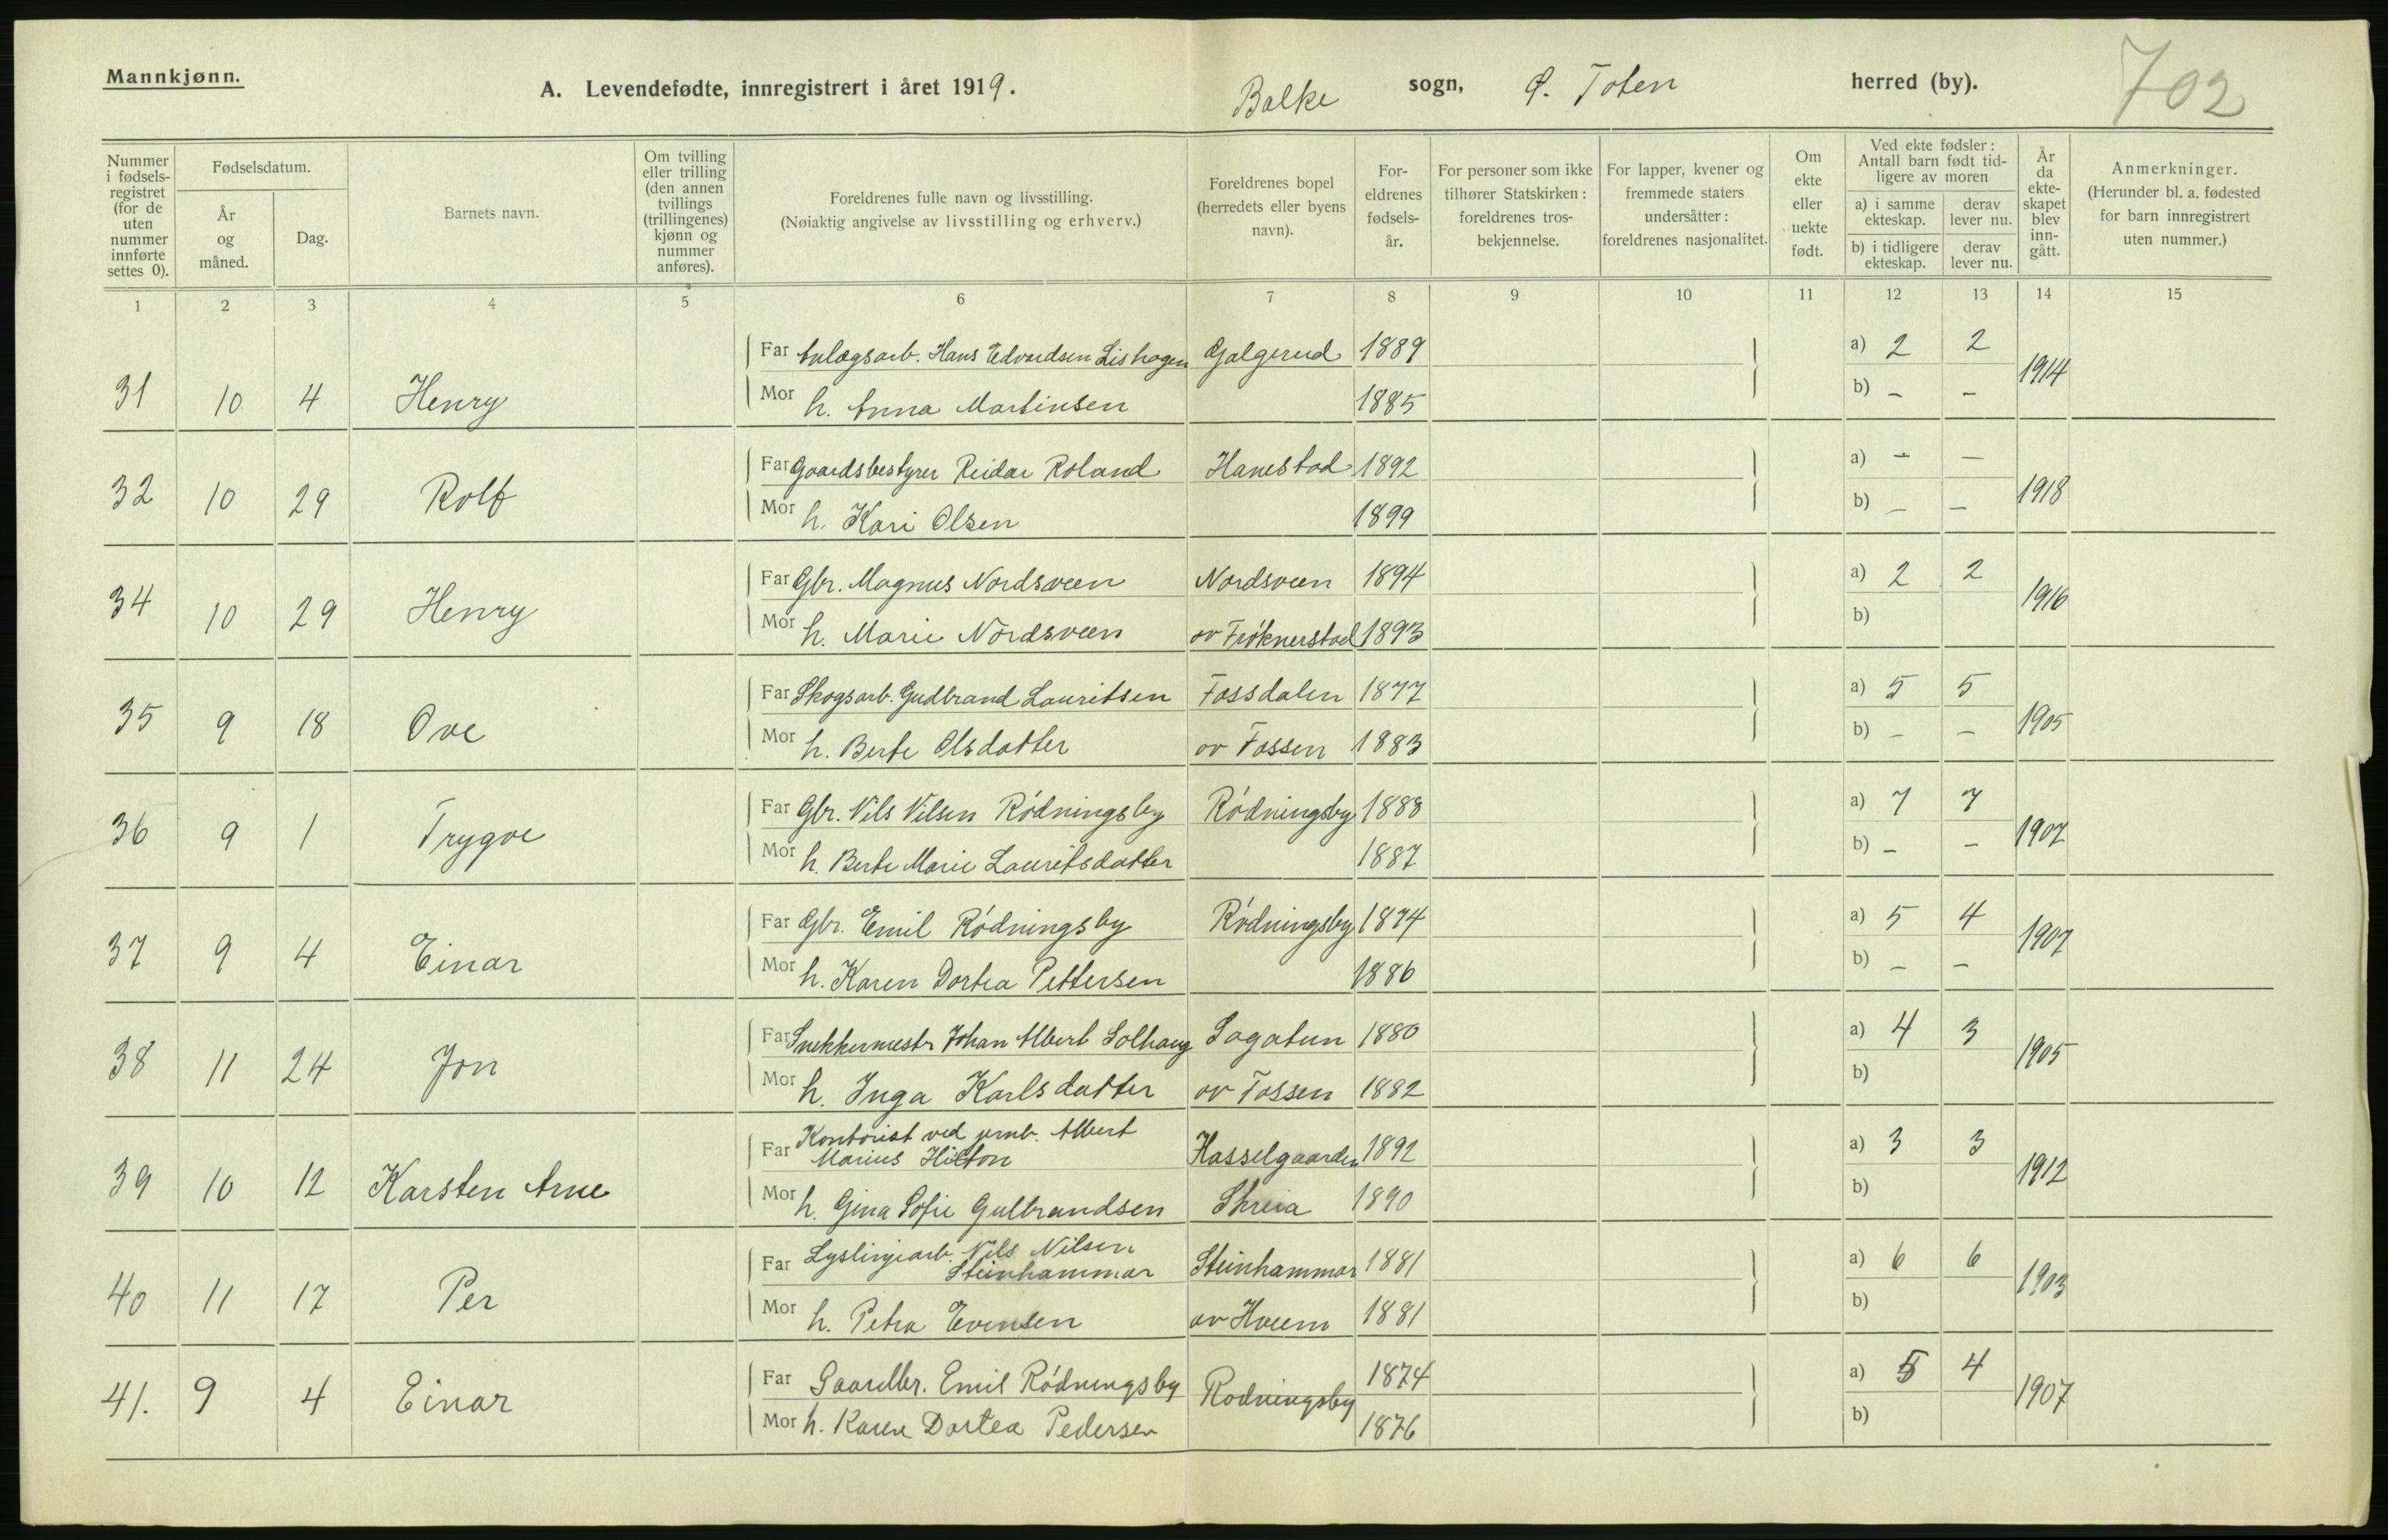 Mannkjønn.
A. Levendefødte, innregistrert i året 1919.
Balke sogn, Ø. Toten herred (by).
702
Nummer i fødsels-registret (for de uten nummer innførte settes 0).
Fødselsdatum.
År og måned.
Dag.
Barnets navn.
Om tvilling eller trilling (den annen tvillings (trillingenes) kjønn og nummer anføres).
Foreldrenes fulle navn og livsstilling.
(Nøiaktig angivelse av livsstilling og erhverv.)
Foreldrenes bopel (herredets eller byens navn).
For-eldrenes fødsels-år.
For personer som ikke tilhører Statskirken: foreldrenes tros-bekjennelse.
For lapper, kvener og fremmede staters undersåtter: foreldrenes nasjonalitet.
Om ekte eller uekte født.
Ved ekte fødsler: Antall barn født tid-ligere av moren
a) i samme ekteskap. derav lever nu.
b) i tidligere ekteskap. derav lever nu.
År da ekte-skapet blev inn-gått.
Anmerkninger.
(Herunder bl. a. fødested for barn innregistrert uten nummer.)
1 2 3 4 5 6 7 8 9 10 11 12 13 14 15
Far Anlægsarb. Hans Edvardsen Lishagen Galgerud 1889 a) 2 2
31 10 4 Henry 1914
Mor h. Anna Martinsen 1885 b) – –
Far Gaardsbestyrer Reidar Roland Hanestad 1892 a) – –
32 10 29 Rolf 1918
Mor h. Kari Olsen 1899 b) – –
Far Gbr. Magnus Nordsveen Nordsveen 1894 a) 2 2
34 10 29 Henry 1916
Mor h. Marie Nordsveen av Frøknerstad 1893 b)
Far Skogsarb. Gudbrand Lauritsen Fossdalen 1877 a) 5 5
35 9 18 Ove 1905
Mor h. Berte Olsdatter av Fossen 1883 b) – –
Far Gbr. Nils Nilsen Rødningsby Rødningsby 1888 a) 7 7
36 9 1 Trygve 1907
Mor h. Berte Marie Lauritsdatter 1887 b) – –
Far Gbr. Emil Rødningsby Rødningsby 1874 a) 5 4
37 9 4 Einar 1907
Mor h. Karen Dortea Pettersen 1886 b) – –
Far Snekkermestr Johan Albert Solhaug Sagatun 1880 a) 4 3
38 11 24 Jon 1905
Mor h. Inga Karlsdatter av Fossen 1882 b)
Far Kontorist ved jernb. Albert
Marius Hilton Hasselgaarden 1892 a) 3 3
39 10 12 Karsten Arne 1912
Mor h. Gina Sofie Gulbrandsen Skreia 1890 b)
Far Lyslinjearb. Nils Nilsen
Steinhammar Steinhammar 1881 a) 6 6
40 11 17 Per 1903
Mor h. Petra Evensen av Hveem 1881 b)
Far Gaardbr. Emil Rødningsby Rodningsby 1874 a) 5 4
41. 9 4 Einar 1907
Mor h. Karen Dortea Pedersen 1876 b)